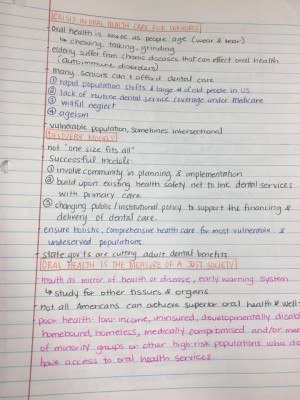 CRISIS IN ORAL HEALTH CARE FOR SENIORS
- oral health is worse as people age (wear & tear)
↳ chewing, talking, grinding
- elderly suffer from chronic diseases that can effect oral health
(autoimmune disorders)
- many seniors can't afford dental care
① rapid population shifts & large # of old people in US
② lack of routine dental service coverage under medicare
③ willful neglect
④ ageism
- vulnerable population, sometimes intersectional
DELIVERY MODELS
- not "one size fits all"
- successful models
① involve community in planning & implementation
② build upon existing health safety net to link dental services
with primary care
③ changing public/institutional policy to support the financing &
delivery of dental care.
- ensure holistic, comprehensive health care for most vulnerable &
underserved populations.
- state gov'ts are cutting adult dental benefits
ORAL HEALTH IS THE MEASURE OF A JUST SOCIETY
- mouth as mirror of health or disease, early warning system
↳ study for other tissues & organs
- not all Americans can achieve superior oral health & well-
poor health: low-income, uninsured, developmentally disabl
homebound, homeless, medically compromised and/or mem
of minority groups or other high-risk populations who do
have access to oral health services.